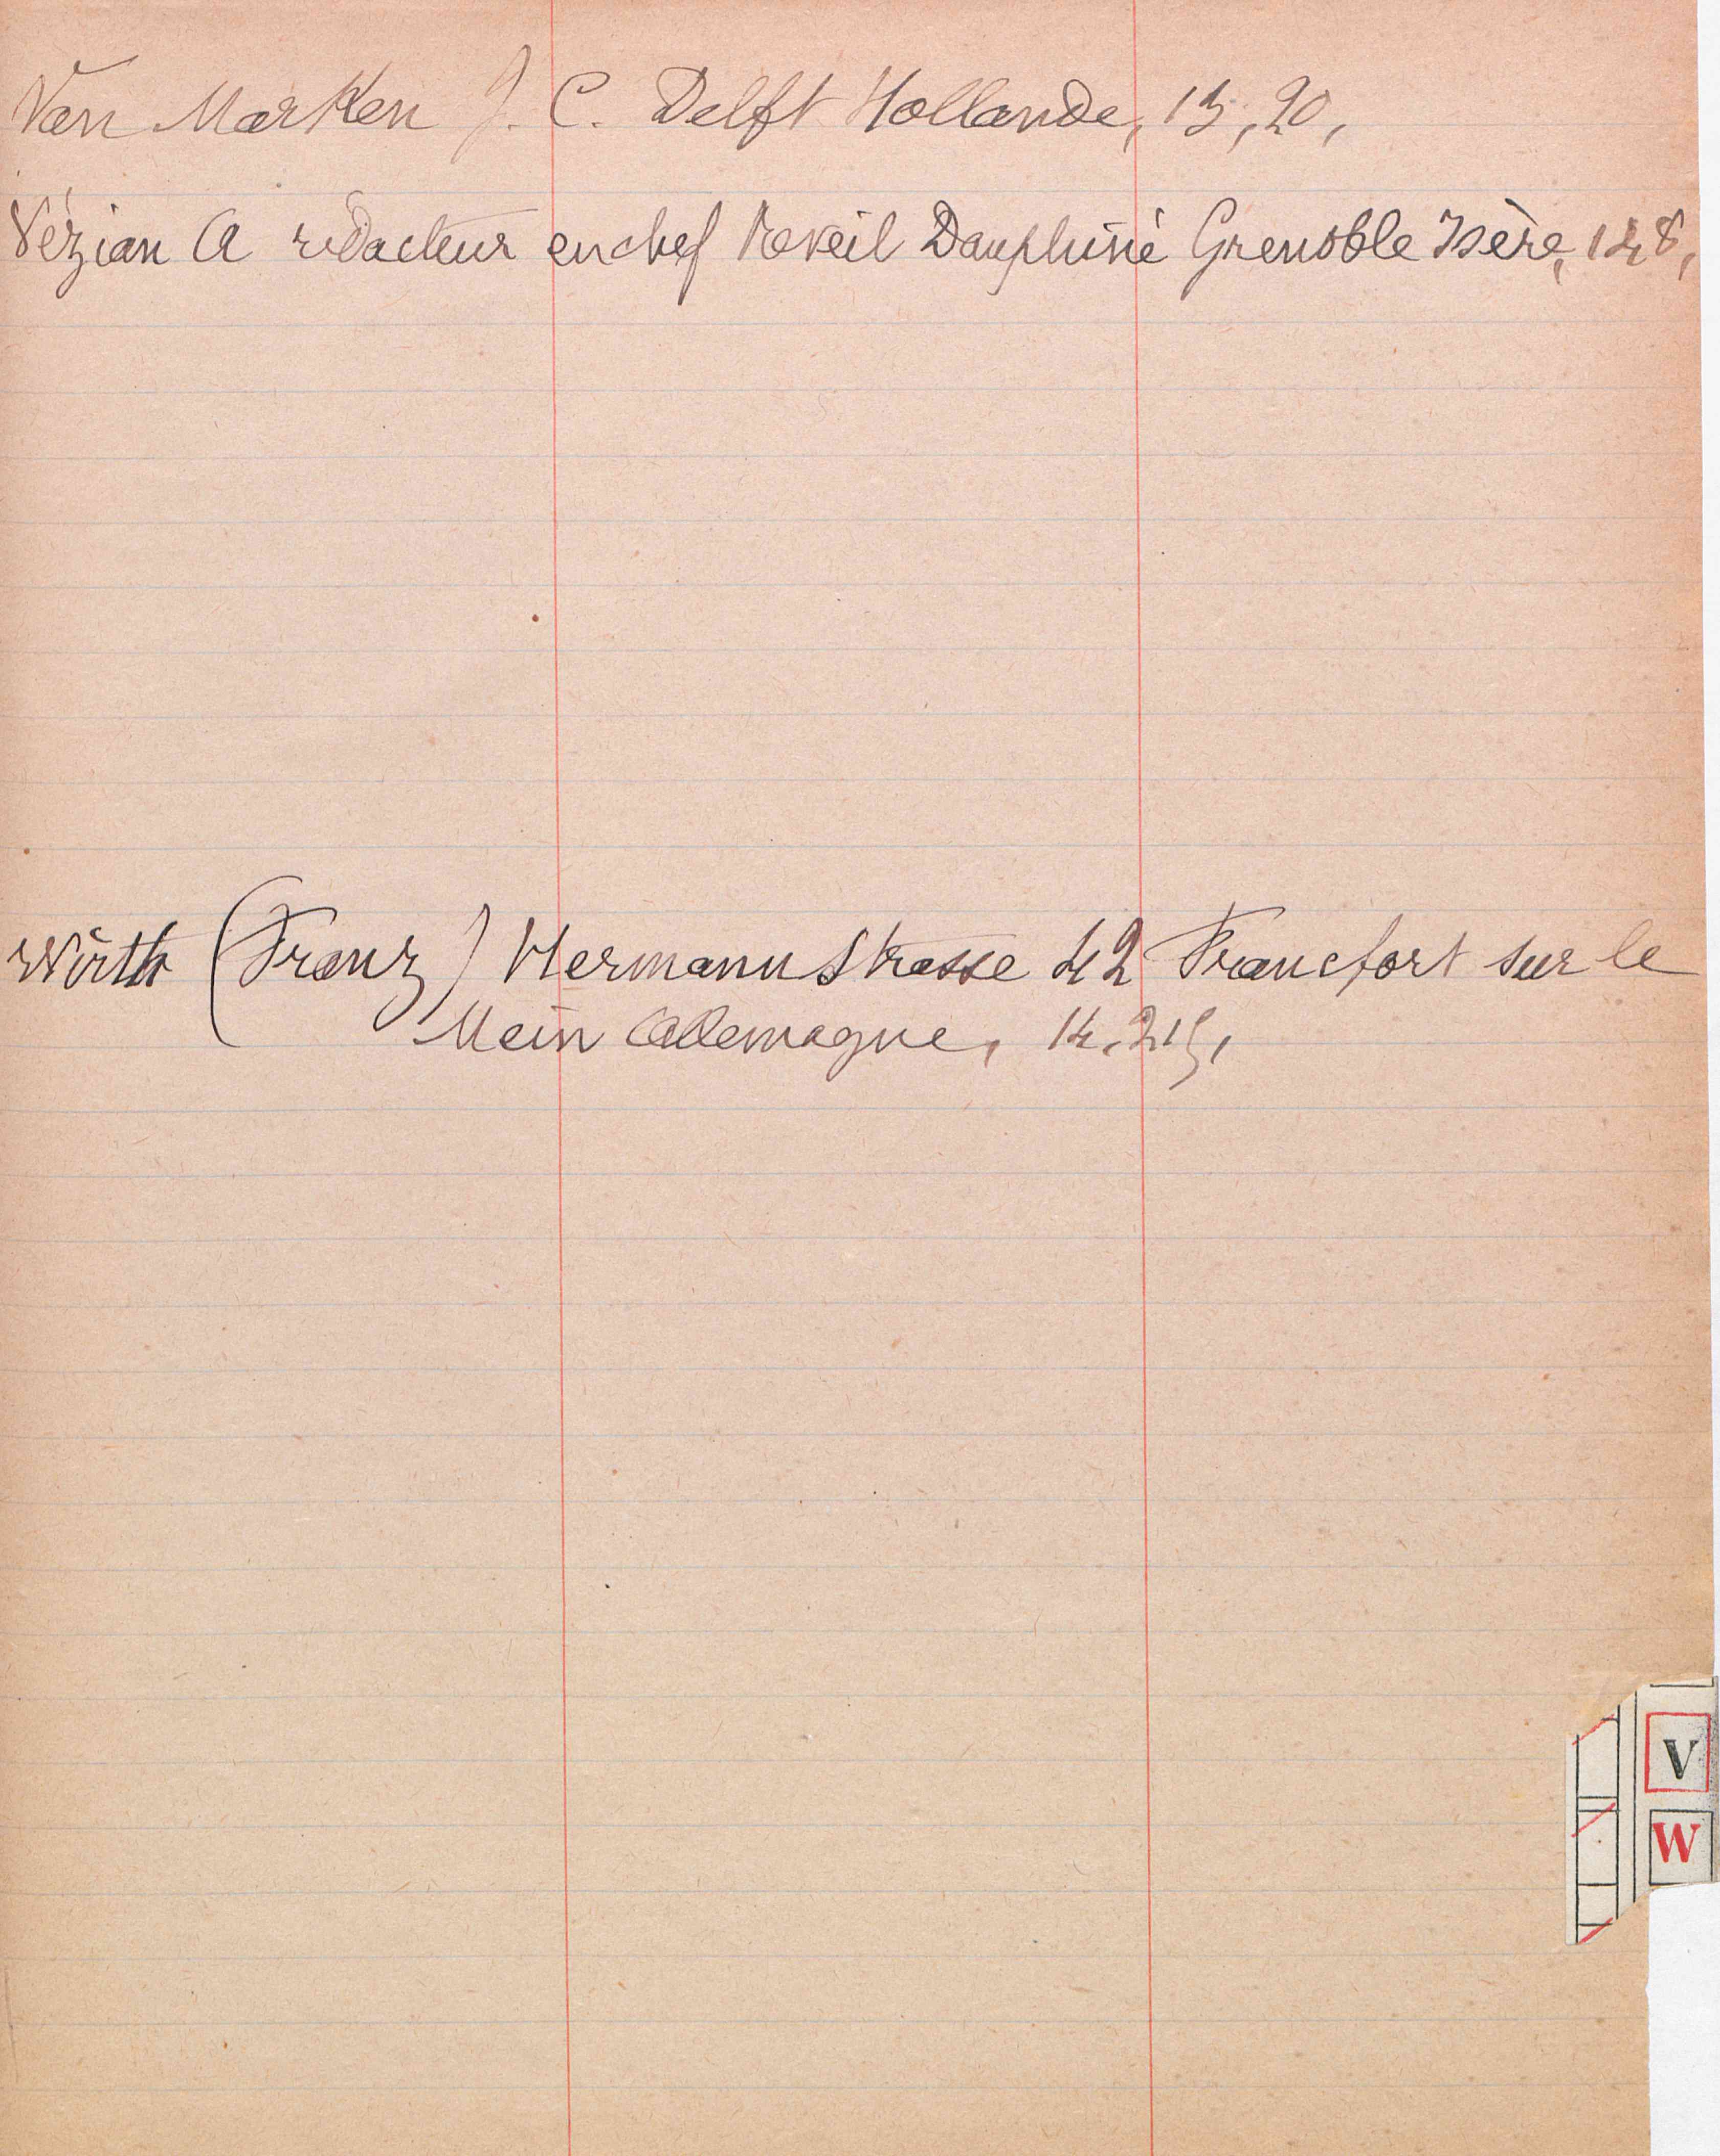 Van Marken J. C. Delft Hollande, 15, 20,
Vézian A rédacteur en chef Reveil Dauphiné Grenoble Isère, 148,
Wirth (Franz) Hermann Strasse 42 Francfort sur le
Mein Allemagne, 14, 215,
V
W